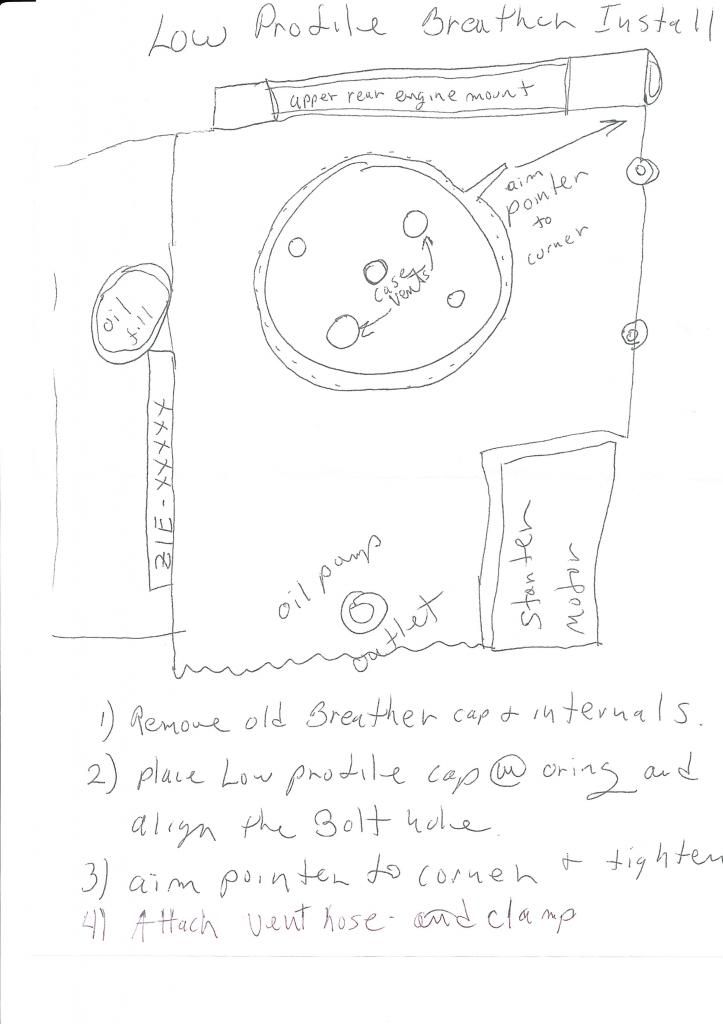 Low Profile Breather Install
upper rear engine mount
aim
pointer
to
corner
case
vents
oil
fill
31E-XXXXX
oil pump
outlet
Starter
Motor
1) Remove old Breather cap & internals.
2) place Low profile cap @ oring and
align the Bolt hole.
3) aim pointer to corner & tighten
4) Attach vent hose and clamp